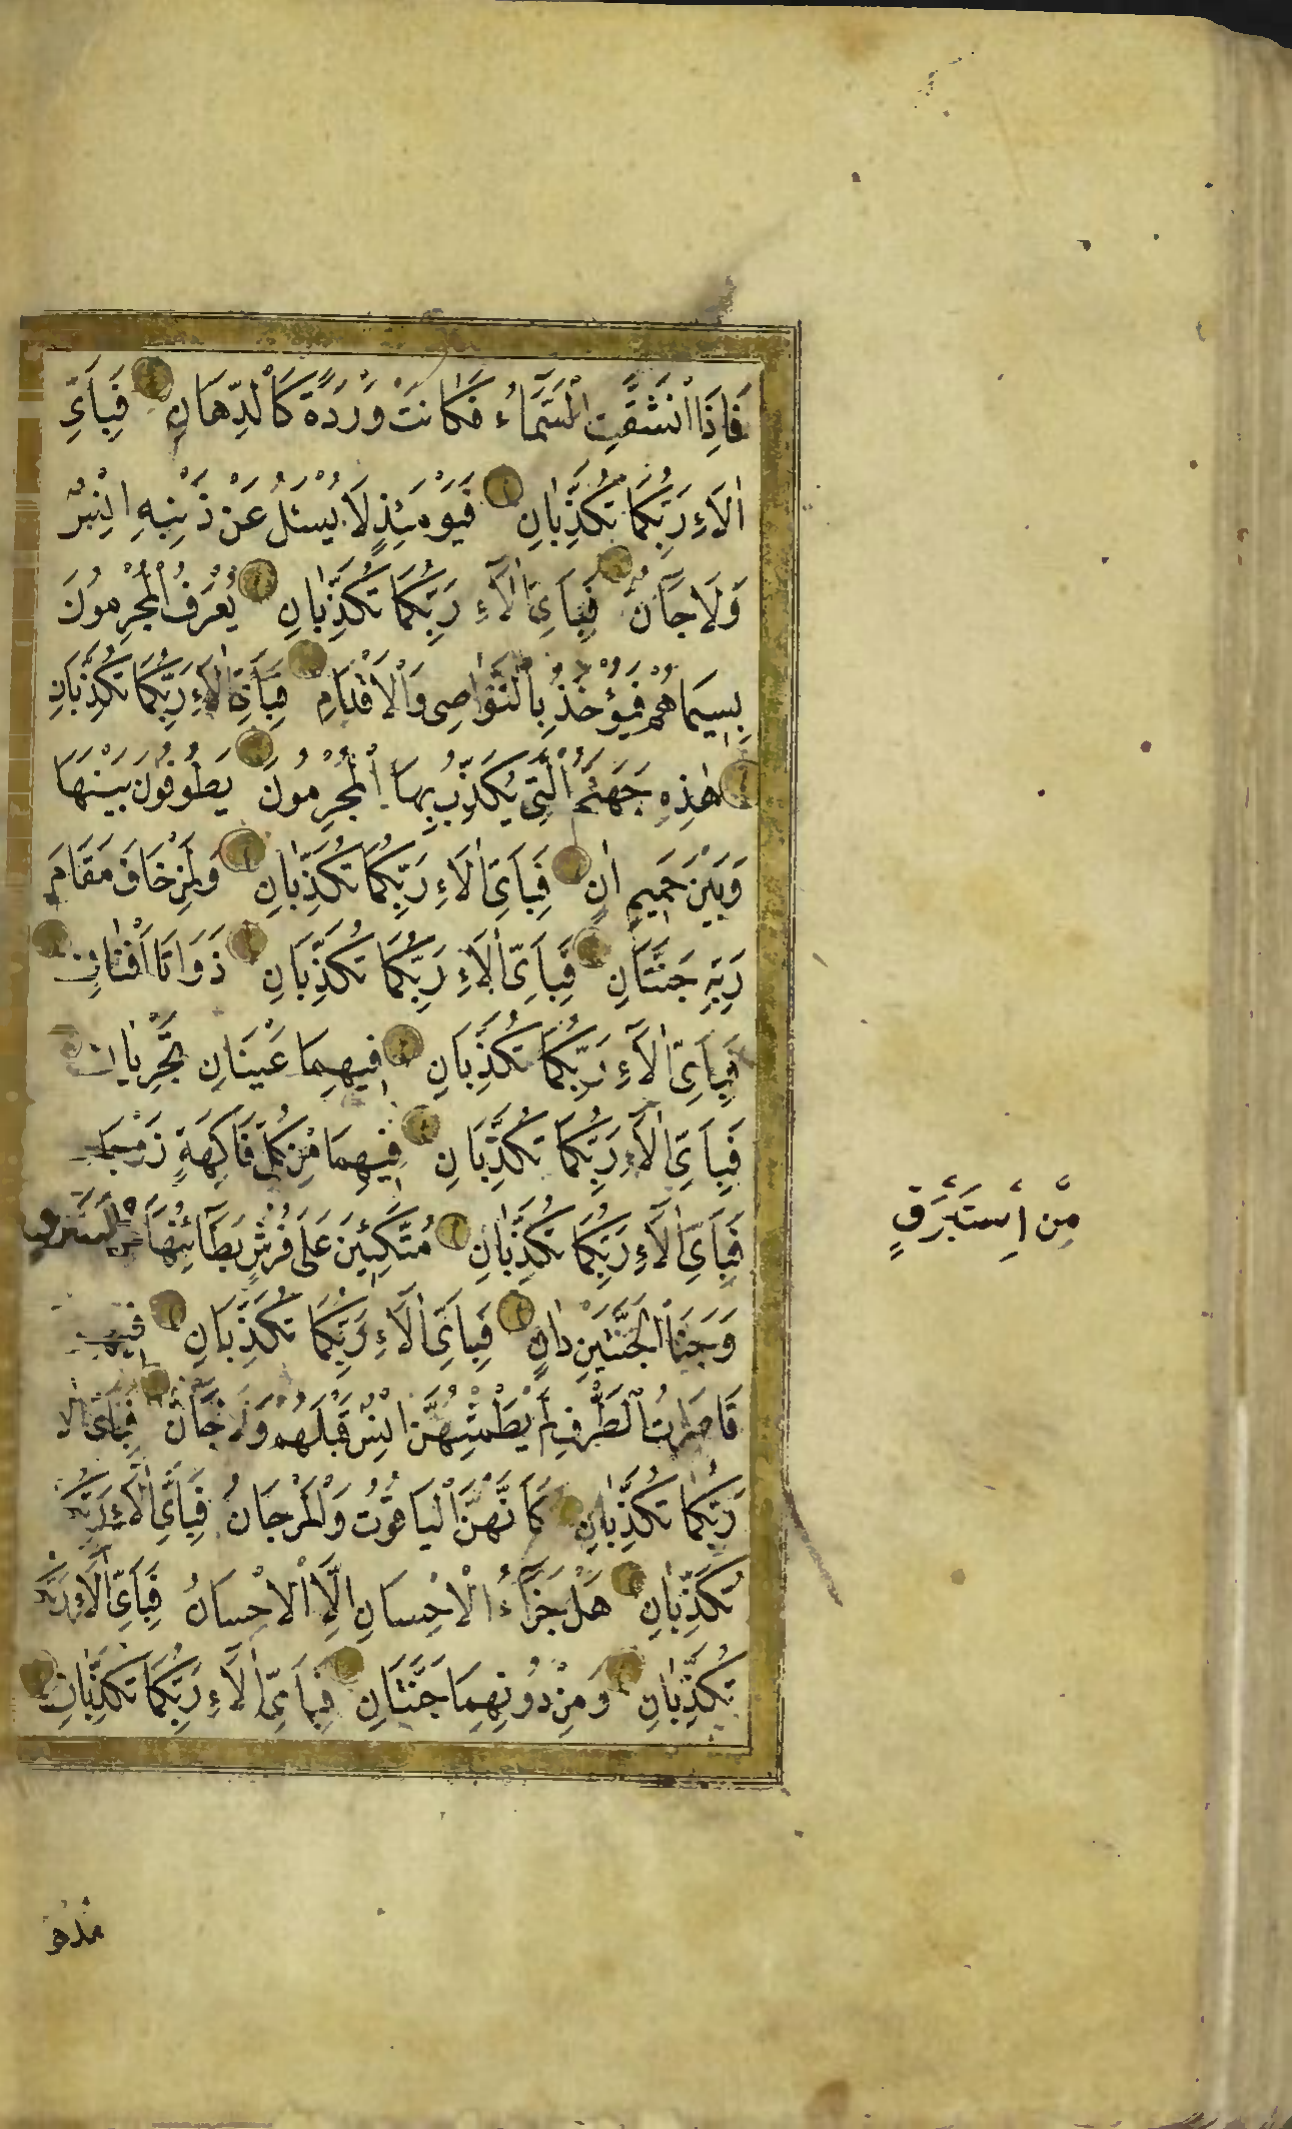 فَاِذَا انْشَقَّتِ السَّمَاءُ فَكَانَتْ وَرْدَةً كَالدِّهَانِ فَبِاَيِّ
اٰلَاءِ رَبِّكُمَا تُكَذِّبَانِ فَيَوْمَئِذٍ لَا يُسْئَلُ عَنْ ذَنْبِهِ اِنْسٌ
وَلَا جَانٌّ فَبِاَيِّ اٰلَاءِ رَبِّكُمَا تُكَذِّبَانِ يُعْرَفُ الْمُجْرِمُونَ
بِسِيمَاهُمْ فَيُؤْخَذُ بِالنَّوَاصِى وَالْاَقْدَامِ فَبِاَيِّ اٰلَاءِ رَبِّكُمَا تُكَذِّبَانِ
هٰذِهِ جَهَنَّمُ الَّتِى يُكَذِّبُ بِهَا الْمُجْرِمُونَ يَطُوفُونَ بَيْنَهَا
وَبَيْنَ حَمِيمٍ اٰنٍ فَبِاَيِّ اٰلَاءِ رَبِّكُمَا تُكَذِّبَانِ وَلِمَنْ خَافَ مَقَامَ
رَبِّهِ جَنَّتَانِ فَبِاَيِّ اٰلَاءِ رَبِّكُمَا تُكَذِّبَانِ ذَوَاتَا اَفْنَانٍ
فَبِاَيِّ اٰلَاءِ رَبِّكُمَا تُكَذِّبَانِ فِيهِمَا عَيْنَانِ تَجْرِيَانِ
فَبِاَيِّ اٰلَاءِ رَبِّكُمَا تُكَذِّبَانِ فِيهِمَا مِنْ كُلِّ فَاكِهَةٍ
فَبِاَيِّ اٰلَاءِ رَبِّكُمَا تُكَذِّبَانِ مُتَّكِئِينَ عَلَى فُرُشٍ بَطَائِنُهَا
مِنْ اِسْتَبْرَقٍ
وَجَنَا الْجَنَّتَيْنِ دَانٍ فَبِاَيِّ اٰلَاءِ رَبِّكُمَا تُكَذِّبَانِ
قَاصِرَاتُ الطَّرْفِ لَمْ يَطْمِثْهُنَّ اِنْسٌ قَبْلَهُمْ وَلَا جَانٌّ فَبِاَيِّ اٰلَا
رَبِّكُمَا تُكَذِّبَانِ كَاَنَّهُنَّ الْيَاقُوتُ وَالْمَرْجَانُ فَبِاَيِّ اٰلَاءِ رَبِّكُمَا
تُكَذِّبَانِ هَلْ جَزَاءُ الْاِحْسَانِ اِلَّا الْاِحْسَانُ فَبِاَيِّ اٰلَاءِ رَبِّكُمَا
تُكَذِّبَانِ وَمِنْ دُونِهِمَا جَنَّتَانِ فَبِاَيِّ اٰلَاءِ رَبِّكُمَا تُكَذِّبَانِ